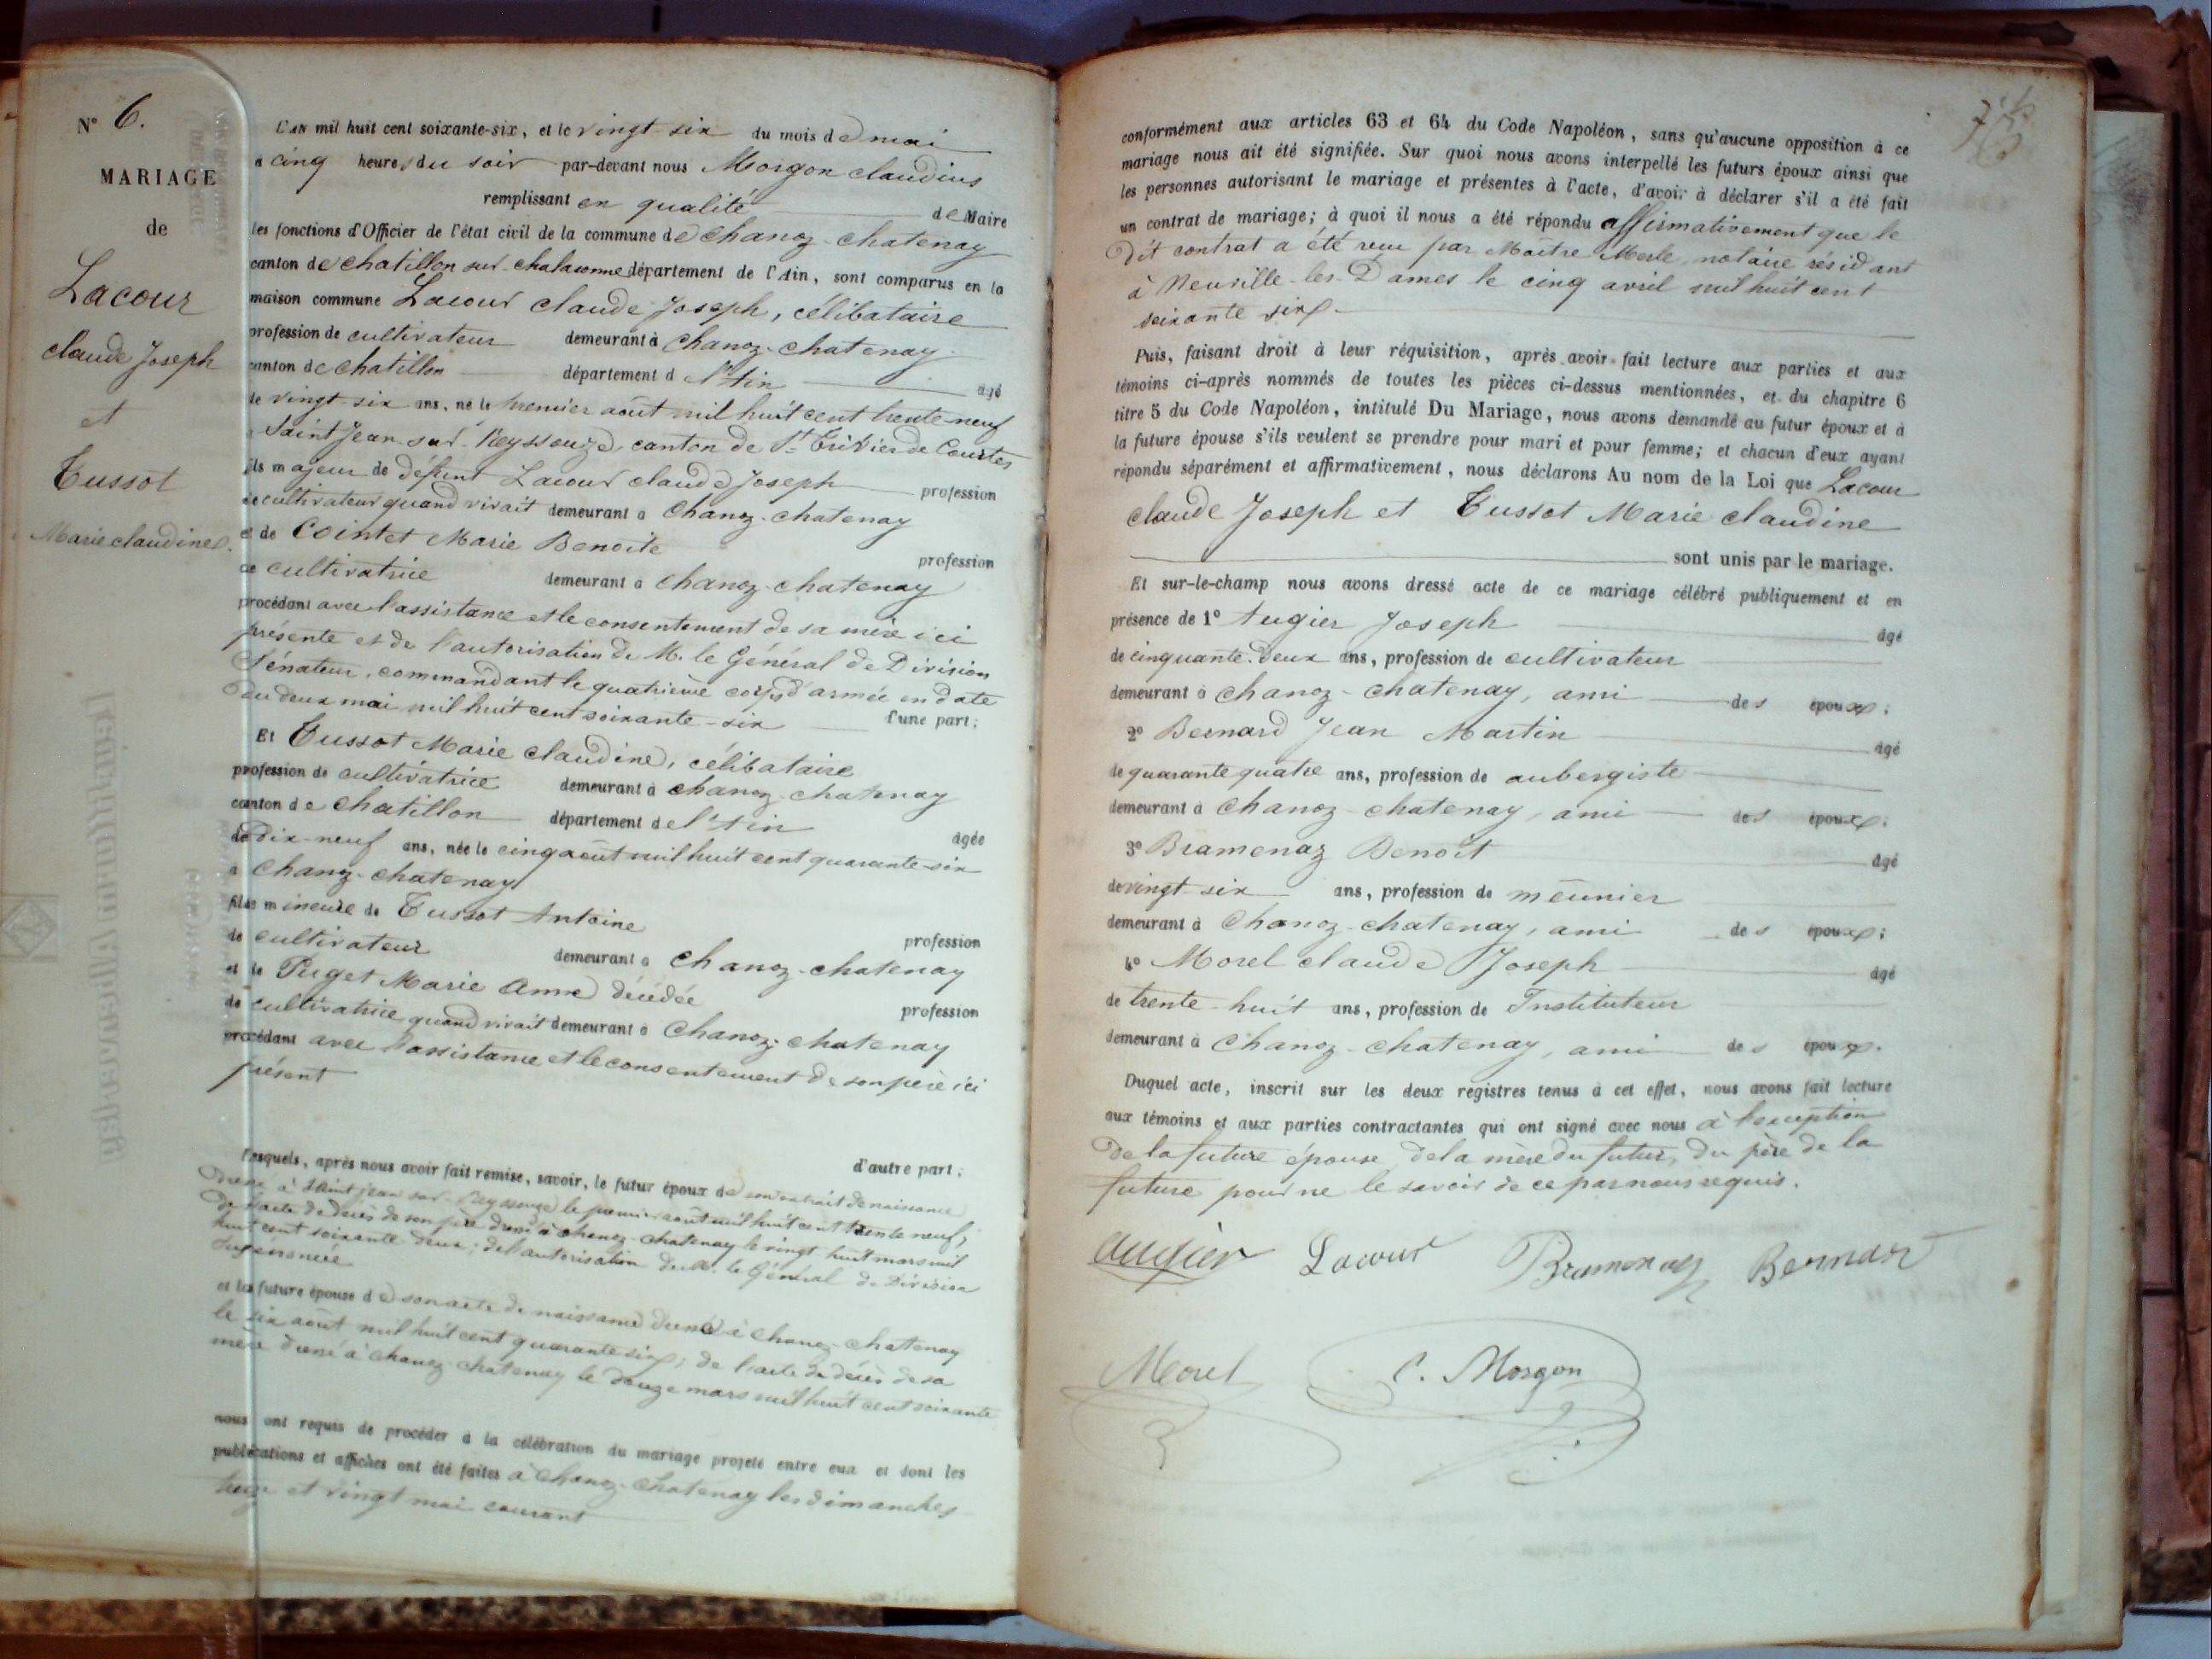 N° 6.
MARIAGE
de
Lacour
claude Joseph
et
Tussot
Marie claudine.
L'AN mil huit cent soixante-six, et le vingt-six du mois de mai
à cinq heures du soir par-devant nous Morgon claudius
remplissant en qualité de Maire
les fonctions d'Officier de l'état civil de la commune de Chanoz-Chatenay
canton de chatillon sur chalaronne département de l'Ain, sont comparus en la
maison commune Lacour claude Joseph, célibataire
profession de cultivateur demeurant à Chanoz-chatenay
canton de chatillon département d l'Ain agé
de vingt-six ans, né le premier août mil huit cent trente-neuf
à Saint Jean sur Reyssouze, canton de St Trivier de Courtes
fils majeur de défunt Lacour claude Joseph profession
de cultivateur quand vivait demeurant à Chanoz-chatenay
et de Cointet Marie Benoite profession
de cultivatrice demeurant à Chanoz-chatenay
procédant avec l'assistance et le consentement de sa mère ici
présente et de l'autorisation de M. le Général de Division
Sénateur, commandant le quatrième corps d'armée en date
du deux mai mil huit cent soixante-six d'une part;
Et Tussot Marie claudine, célibataire
profession de cultivatrice demeurant à chanoz-chatenay
canton de chatillon département de l'Ain agée
de dix-neuf ans, née le cinq août mil huit cent quarante-six
à Chanoz-chatenay
fille mineure de Tussot Antoine profession
de cultivateur demeurant à Chanoz-chatenay
et de Puget Marie Anne décédée profession
de cultivatrice quand vivait demeurant à Chanoz-chatenay
procédant avec l'assistance et le consentement de son père ici
présent
d'autre part;
Lesquels, après nous avoir fait remise, savoir, le futur époux de son extrait de naissance
dressé à Saint Jean sur Reyssouze le premier août mil huit cent trente neuf;
de l'acte de décès de son père dressé à chanoz-chatenay le vingt huit mars mil
huit cent soixante deux; de l'autorisation de M. le Général de Division
susénoncée
et la future épouse de son acte de naissance dressé à Chanoz-chatenay
le six août mil huit cent quarante six; de l'acte de décès de sa
mère dressé à chanoz-chatenay le douze mars mil huit cent soixante
nous ont requis de procéder à la célébration du mariage projeté entre eux et dont les
publications et affiches ont été faites à Chanoz-Chatenay les dimanches
treize et vingt mai courant
conformément aux articles 63 et 64 du Code Napoléon, sans qu'aucune opposition à ce
mariage nous ait été signifiée. Sur quoi nous avons interpellé les futurs époux ainsi que
les personnes autorisant le mariage et présentes à l'acte, d'avoir à déclarer s'il a été fait
un contrat de mariage; à quoi il nous a été répondu affirmativement que le
dit contrat a été reçu par Maître Merle notaire résidant
à Neuville-les-Dames le cinq avril mil huit cent
soixante six.
Puis, faisant droit à leur réquisition, après avoir fait lecture aux parties et aux
témoins ci-après nommés de toutes les pièces ci-dessus mentionnées, et du chapitre 6
titre 5 du Code Napoléon, intitulé Du Mariage, nous avons demandé au futur époux et à
la future épouse s'ils veulent se prendre pour mari et pour femme; et chacun d'eux ayant
répondu séparément et affirmativement, nous déclarons Au nom de la Loi que Lacour
claude Joseph et Tussot Marie claudine
sont unis par le mariage.
Et sur-le-champ nous avons dressé acte de ce mariage célébré publiquement et en
présence de 1° Augier Joseph agé
de cinquante-deux ans, profession de cultivateur
demeurant à Chanoz-chatenay, ami des époux;
2° Bernard Jean Martin agé
de quarante quatre ans, profession de aubergiste
demeurant à Chanoz-chatenay, ami des époux;
3° Bramenaz Benoît agé
de vingt-six ans, profession de meunier
demeurant à Chanoz-chatenay, ami des époux;
4° Morel claude Joseph agé
de trente-huit ans, profession de Instituteur
demeurant à Chanoz-chatenay, ami des époux.
Duquel acte, inscrit sur les deux registres tenus à cet effet, nous avons fait lecture
aux témoins et aux parties contractantes qui ont signé avec nous à l'exception
de la future épouse, de la mère du futur, du père de la
future pour ne le savoir de ce par nous requis.
Augier Lacour Bramenaz Bernard
Morel C. Morgon